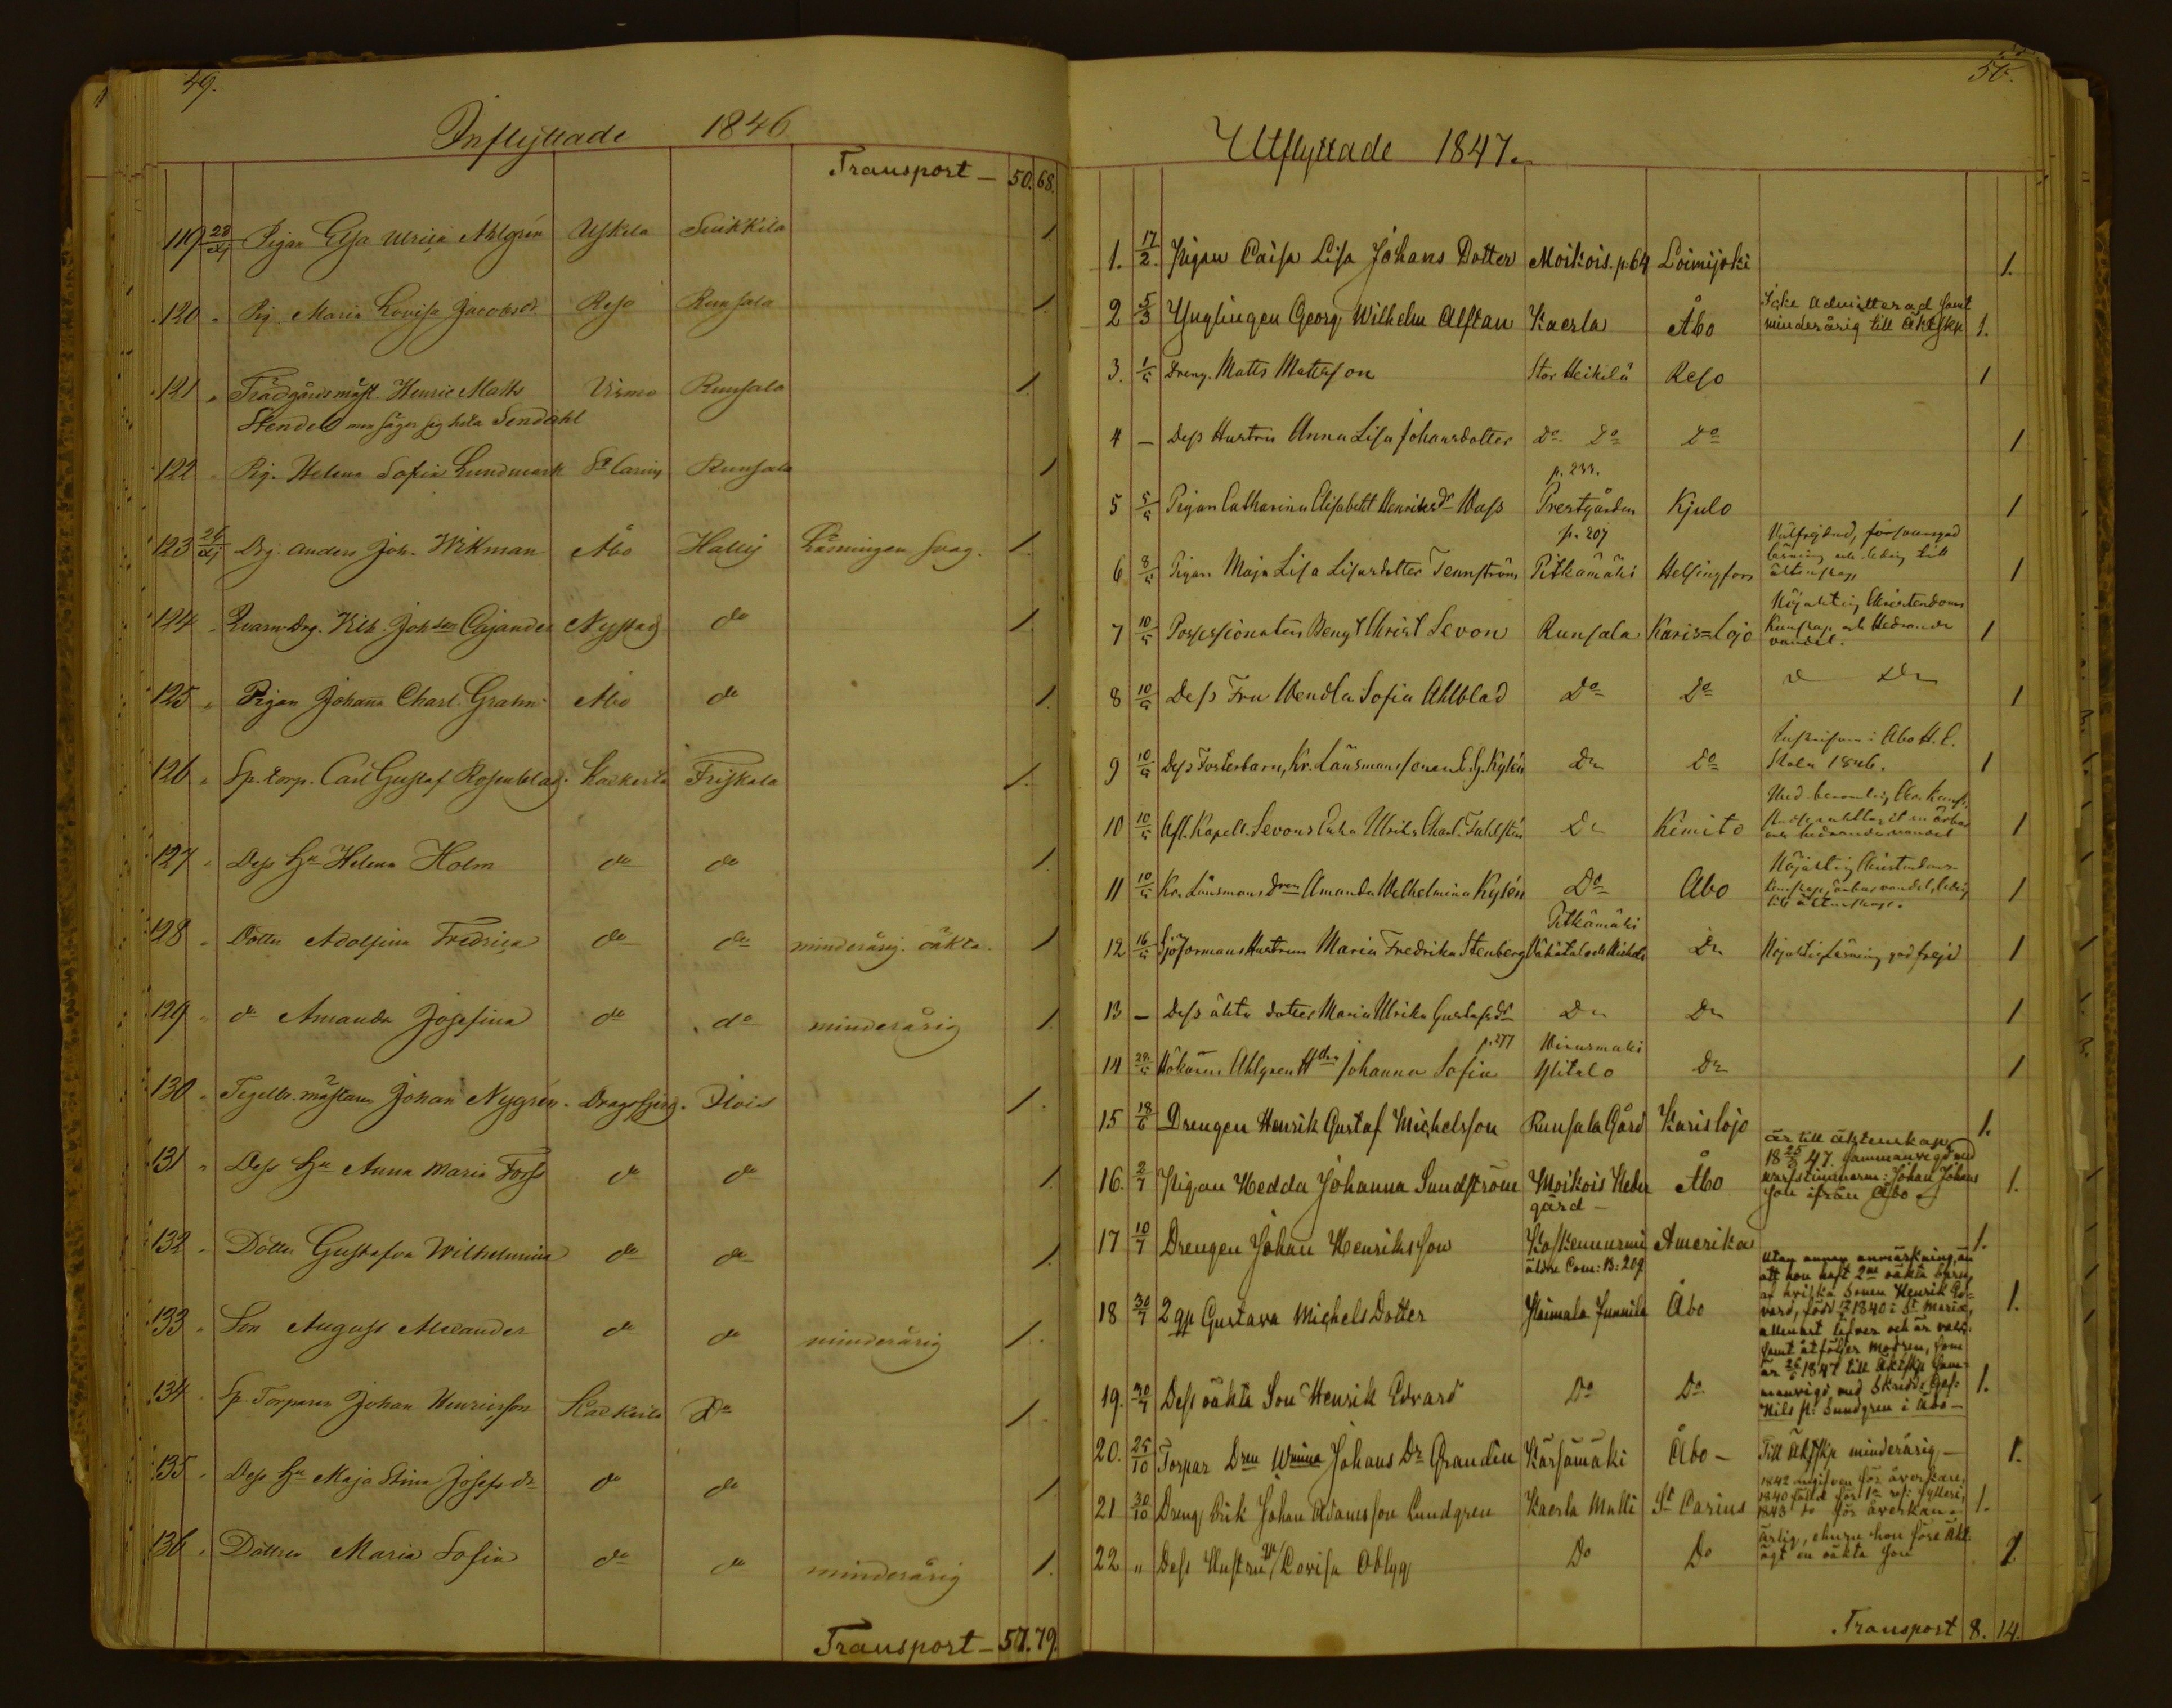 49.
Inflyttade 1846
Transport — 50. 68.
119 23/XI Pigan Elsa Ulrica Ahlgrén Uskela Suikkila 1.
120 " Pig. Maria Lovisa Jacobsdr Reso Runsala 1.
121 " Trädgårdsmäst. Henric Matts Virmo Runsala 1.
Stendell men säger sig heta Sendahl
122 " Pig. Helena Sofia Lundmark St Carins Runsala 1
123 26/XI Drg. Anders Joh. Wikman Åbo Hallis Läsningen svag. 1.
124 " Qvarn-Drg. Wilh. Johsson Cajander Nystad do 1.
125 " Pigan Johana Charl. Grahn Åbo do 1.
126 " Sp. torp. Carl Gustaf Rosenblad. Kackerta Friskala 1.
127 " Dess Hu Helena Holm do do 1.
128 " Dotter Adolfina Fredrica do do minderårig. oäkta. 1
129 " do Amanda Josefina do do minderårig 1.
130 " Tegelbr. mästaren Johan Nygrén. Dragsfjerd. Ilois 1.
131 " Dess Hu Anna Maria Forss do do 1.
132 " Dotter Gustafva Wilhelmina do do 1.
133 " Son August Alexander do do minderårig 1.
134 " Sp. Torparen Johan Henricsson Kackerta Do 1.
135 " Dess Hu Maja Stina Josefs dr do do 1
136 " Dottren Maria Sofia do do minderårig 1.
Transport — 57. 79.
50.
Utflyttade 1847.
1. 17/2 Pigan Caisa Lisa Johans Dotter Moikois. p. 64 Loimijoki 1.
Icke admitterad samt
2 5/3 Ynglingen Georg Wilhelm Alftan Kaerla Åbo minderårig till Äktskp 1.
3. 1/5 Dreng. Matts Mattsson Stor Heikilä Reso 1
4 — Dess Hustru Anna Lisa Johansdotter Do Do Do 1
p. 233.
5 5/5 Pigan Catharina Elisabeth Henriksdr Wass Prestgården Kjulo 1
p. 207 Välfrejdad, försvarsgod
läsning och ledig till
6 8/5 Pigan Maja Lisa Lisasdotter Tennström Pitkämäki Helsingfors äktenskap 1
Nöjaktig Christendoms
7 10/5 Possessionaten Bengt Christ Levon Runsala Karis=Lojo Kunskap och Hedrande 1
vandel.
8 10/5 Dess Fru Wendla Sofia Ahlblad Do Do D Do 1
Inskrifven i Åbo H. E.
9 10/5 Dess Fosterbarn, Kr. Länsmanssonen E. G. Kylén Do Do Skola 1846. 1
10 10/5 Afl. Kapell. Levons Enka Ulrika Charl. Fahlstén Do Kimito och hedrande vandel 1
Nöjaktig Christendoms
11 10/5 Kr. Länsmans dren Amanda Wilhelmina Kylén Do Åbo kunskap, ärbar vandel, ledig 1
till äktenskap.
Pitkämäki
12 16/5 Sjöformans Hustrun Maria Fredrika Stenberg Do Nöjaktig läsning god frejd 1
13 — Dess äkta dotter Maria Ulrika Gustafsdr Do Do 1
p. 277
14 29/5 Ahlgren Johanna Sofia Ylitalo Do 1
15 18/6 Drengen Henrik Gustaf Michelsson Runsala Gård Karislojo 1.
är till äktenskap
18 25/3 47 sammanvigd med
16. 2/7 Pigan Hedda Johanna Sundström Moikois Neder Åbo warfstimmerm: Johan Johans 1.
gård — son ifrån Åbo
17 10/7 Drengen Johan Henriksson Koskennurmi Amerika 1.
äldre Com: B: 209
Utan annan anmärkning, än
att hon haft 2ne oäkta barn,
af hvilka Sonen Henrik Ed-
18 30/7 2 qp Gustava Michels Dotter Haimala Junnila Åbo vard, född 1840 i St Mariæ, 1.
allenast lefver och är vacc:
samt åtföljer Modren, som
är 26/6 1847 till Äktskp Sam-
19. 30/7 Dess oäkta Son Henrik Edvard Do Do manvigd med Skrädd: Ges: 1.
Nils Sundgren i Åbo —
20. 25/10 Torpar Dren Wmina Johans Dr Grandin Kärsämäki Åbo — Till Äktskp minderårig — 1.
1842 angifven för åverkan,
1840 fälld för 1a res: fylleri,
21 30/10 Dreng Erik Johan Adamsson Lundgren Kaerla Mulli St Carins 1843 do för åverkan. 1.
ärlig, ehuru hon före Äkt.
22 " Dess Hustru qp Lovisa Oblyg Do Do ägt en oäkta son 1
Transport 8. 14.